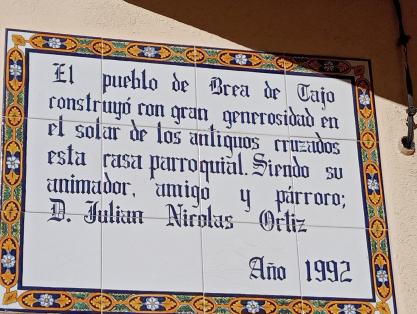 El pueblo de Brea de Tajo
construyó con gran generosidad en
el solar de los antiguos cruzados
esta casa parroquial. Siendo su
animador, amigo y párroco;
D. Julian Nicolas Ortiz
Año 1992